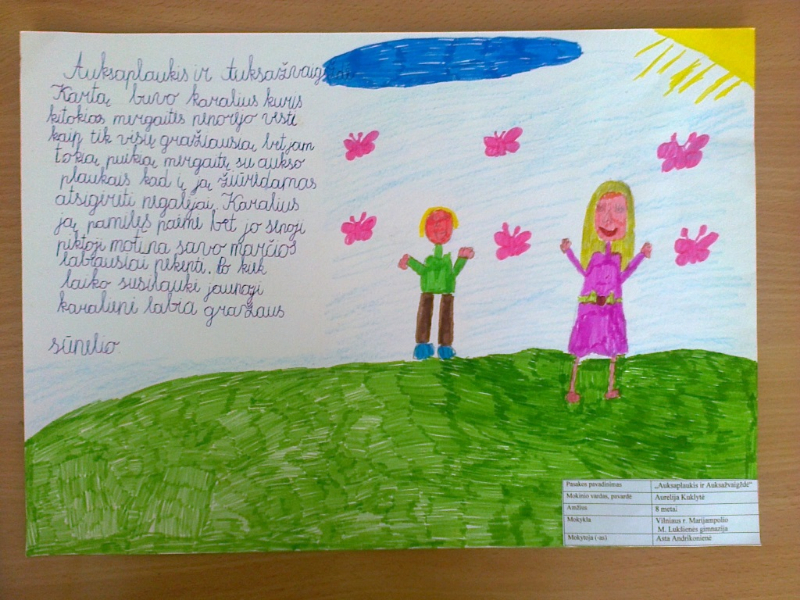 Auksaplaukis ir Auksažvaigždė
Kartą buvo karalius kuris
kitokios mergaitės nenorėjo vesti
kaip tik visų gražiausią, bet jam
tokią puikią mergaitę su aukso
plaukais kad į ją žiūrėdamas
atsigėrėti negalėjai. Karalius
ją pamilęs paėmė bet jo senoji
piktoji motina savo marčios
labiausiai nekentė. Po kiek
laiko susilaukė jaunoji
karalienė labai gražaus
sūnelio
Pasakos pavadinimas „Auksaplaukis ir Auksažvaigždė“
Mokinio vardas, pavardė Aurelija Kuklytė
Amžius 8 metai
Mokykla Vilniaus r. Marijampolio
M. Lukšienės gimnazija
Mokytoja (-as) Asta Andrikonienė